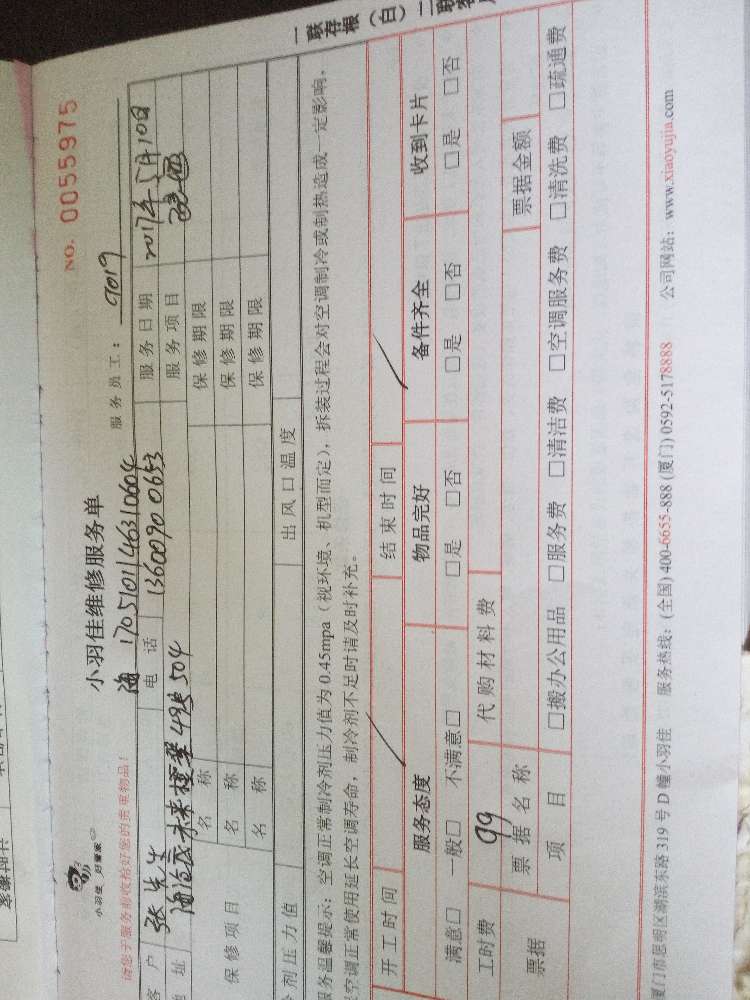 小羽佳 好管家
NO. 0055975
小羽佳维修服务单
服务员工：9019
请您于服务前收检好您的贵重物品！
海 1705101146310604
客户 张先生 电话 13600900653 服务日期 2017年5月10日
地址 海沧 未来橙堡 49 504 服务项目
保修项目
名称 保修期限
名称 保修期限
名称 保修期限
冷剂压力值 出风口温度
服务温馨提示：空调正常制冷剂压力值为0.45mpa（视环境、机型而定），拆装过程会对空调制冷或制热造成一定影响，
空调正常使用延长空调寿命，制冷剂不足时请及时补充。
开工时间 结束时间
服务态度 物品完好 备件齐全 收到卡片
满意□ 一般□ 不满意□ □是 □否 □是 □否 □是 □否
工时费 99 代购材料费
票据 票据名称 票据金额
项目 □搬办公用品 □服务费 □清洁费 □空调服务费 □清洗费 □疏通费
厦门市思明区湖滨东路319号D幢小羽佳 服务热线：(全国) 400-6655-888 (厦门) 0592-5178888 公司网站：www.xiaoyujia.com
一联存根（白）二联客